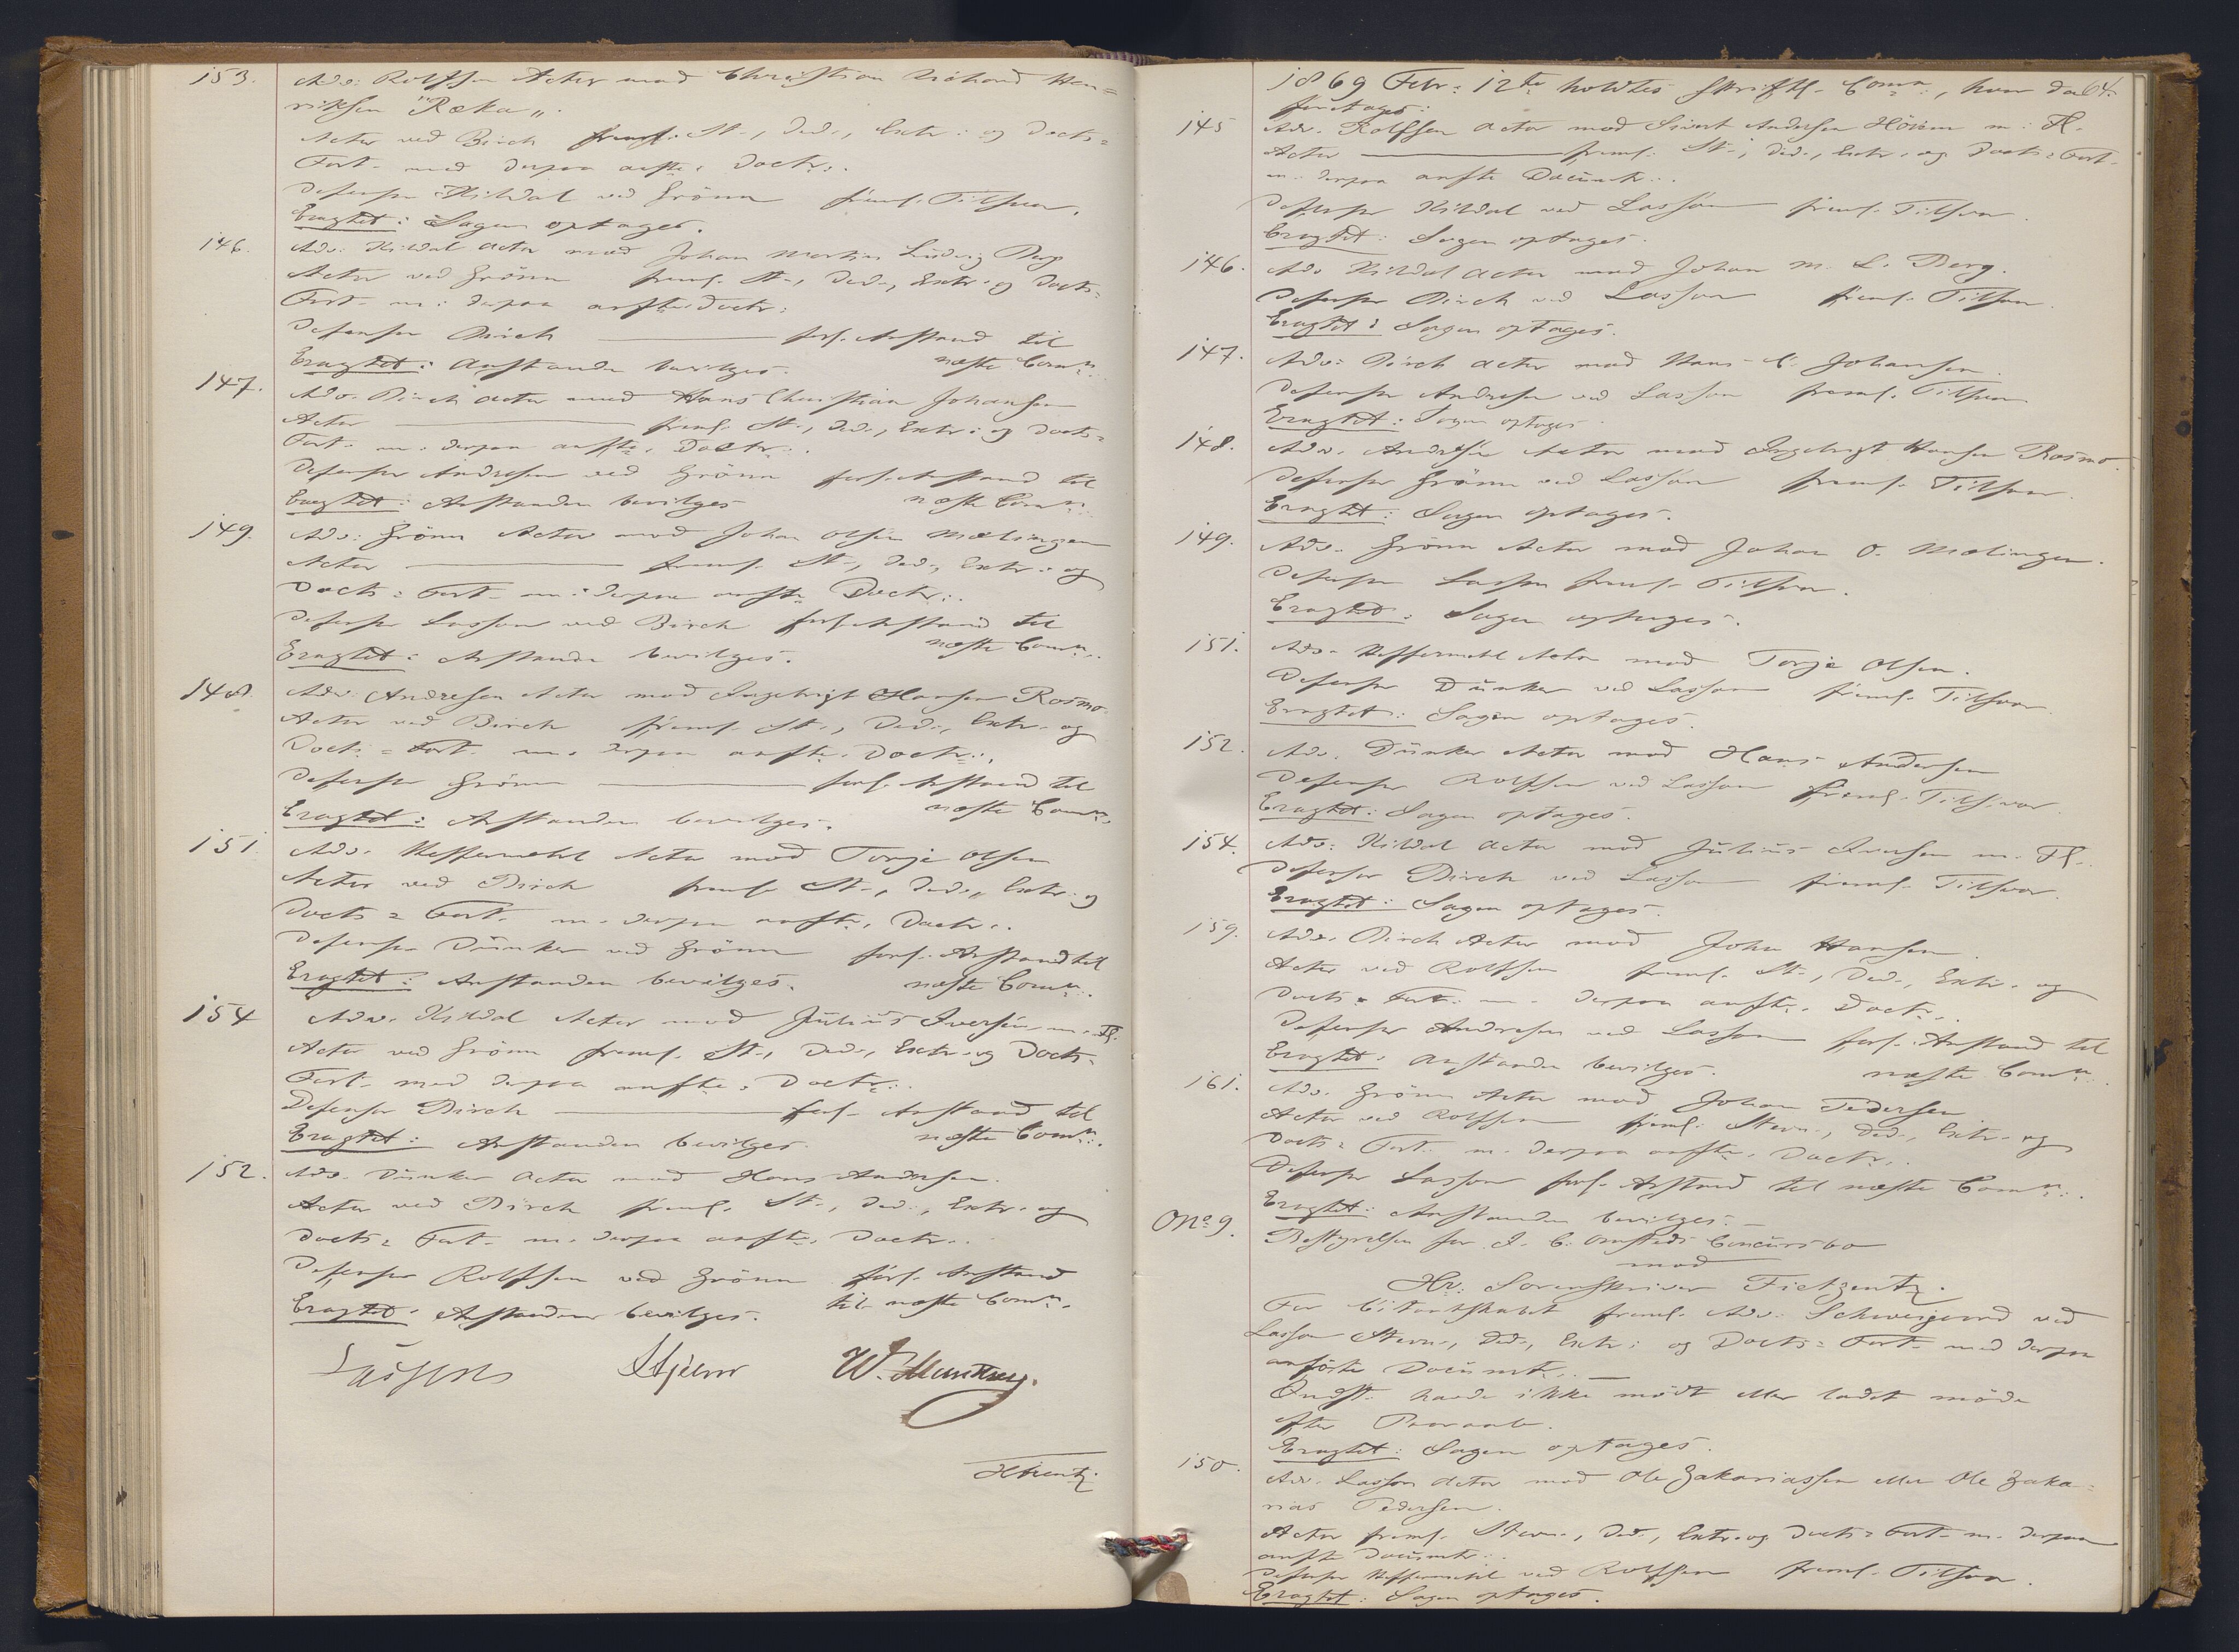 153. Adv: Rolfsen Actor mod Christian Richard Hen=
riksen "Ræka".
Actor ved Birch freml. St-, Ded-, Extr: og Docts=
Fort- med derpaa anfte. Doctr.
Defensor Kildal ved Grönn freml. Tilsvar.
Eragtet: Sagen optages.
146. Adv: Kildal Actor mod Johan Martin Ludvig Berg
Actor ved Grönn freml. St-, Ded-, Extr. og Docts=
Fort- m: derpaa anfte Doctr:
Defensor Birch forl. Anstand til
næste Comn:
Eragtet: Anstanden bevilges.
147. Adv. Birch Actor mod Hans Christian Johansen
Actor freml. St-, Ded-, Extr: og Docts=
Fort- m. derpaa anfte. Doctr.
Defensor Andresen ved Grönn forl. Anstand til
næste Comn:
Eragtet: Anstanden bevilges
149. Adv: Grönn Actor mod Johan Olsen Mælingen
Actor freml. St-, Ded-, Extr: og
Docts= Fort- m: derpaa anfte Doctr:.
Defensor Lasson ved Birch forl. Anstand til
næste Comn:
Eragtet: Anstanden bevilges.
148. Adv: Andresen Actor mod Ingebrigt Hansen Rosmo.
Actor ved Birch freml. St-, Ded-, Extr. og
Docts= Fort- m. derpaa anfte. Doctr:.
Defensor Grönn forl. Anstand til
næste Comn:
Eragtet: Anstanden bevilges.
151. Adv. Heffermehl Actor mod Torje Olsen
Actor ved Birch freml. St-, Ded-, Extr. og
Docts= Fort- m. derpaa anfte. Doctr.
Defensor Dünker ved Grönn forl. Anstand til
næste Comn:
Eragtet: Anstanden bevilges.
154 Adv. Kildal Actor mod Jülius Iversen m. Fl.
Actor ved Grönn freml. St-, Ded-, Extr. og Docts=
Fort- med derpaa anfte. Doctr:.
Defensor Birch forl. Anstand til
næste Comn:
Eragtet: Anstanden bevilges.
152. Adv. Dünker Actor mod Hans Andersen.
Actor ved Birch freml. St-, Ded-, Extr. og
Docts= Fort- m. derpaa anfte. Doctr.
Defensor Rolfsen ved Grönn forl. Anstand
til næste Comn.
Eragtet: Anstanden bevilges.
Lasson Hjelm W. Munthe
1869 Febr: 12te holdtes skriftl. Comn:, hvor da 64.
foretages:
145 Adv. Rolfsen Actor mod Sivert Andersen m: Fl.
Actor freml. St-, Ded-, Extr. og Docts= Fort-
m. derpaa anfte Documtr:.
Defensor Kildal ved Lasson freml. Tilsvar.
Eragtet: Sagen optages.
146. Adv. Kildal Actor mod Johan M. L. Berg.
Defensor Birch ved Lasson freml. Tilsvar.
Eragtet: Sagen optages.
147. Adv: Birch Actor mod Hans C. Johansen.
Defensor Andresen ved Lasson freml. Tilsvar.
Eragtet: Sagen optages.
148. Adv. Andresen Actor mod Ingebrigt Hansen Rosmo.
Defensor Grönn ved Lasson freml. Tilsvar.
Eragtet: Sagen optages.
149. Adv. Grönn Actor mod Johan O. Mælingen.
Defensor Lasson freml. Tilsvar.
Eragtet: Sagen optages.
151. Adv. Heffermehl Actor mod Torje Olsen.
Defensor Dünker ved Lasson freml. Tilsvar.
Eragtet: Sagen optages.
152. Adv. Dünker Actor mod Hans Andersen
Defensor Rolfsen ved Lasson freml. Tilsvar.
Eragtet: Sagen optages.
154. Adv: Kildal Actor mod Jülius Iversen m. Fl.
Defensor Birch ved Lasson freml. Tilsvar.
Eragtet: Sagen optages.
159. Adv. Birch Actor mod John Hansen.
Actor ved Rolfsen freml. St-, Ded-, Extr. og
Docts= Fort- m. derpaa anfte. Doctr.
Defensor Andresen ved Lasson forl. Anstand til
næste Comn:
Eragtet: Anstanden bevilges.
161. Adv. Grönn Actor mod Johan Pedersen
Actor ved Rolfsen freml. Stevn-, Ded-, Extr. og
Docts= Fort- m. derpaa anfte. Doctr.
Defensor Lasson forl. Anstand til næste Comn:.
Eragtet: Anstanden bevilges.
No 9. Bestyrelsen for J. C. Omsteds Concürsbo
mod
Hr. Sorenskriver Fietzentz.
For Citantskabet freml. Adv. Schweigaard ved
Lasson Stevn-, Ded-, Extr: og Docts= Fort- med derpaa
anförte Documtr.
Indst. havde ikke mödt eller ladet möde
efter Paaraab.
Eragtet: Sagen optages.
150. Adv. Lasson Actor mod Ole Zakariassen eller Ole Zaka=
rias Pedersen.
Actor freml. Stevn-, Ded-, Extr. og Docts= Fort- m. derpaa
anfte Documtr:.
Defensor Heffermehl ved Rolfsen freml. Tilsvar.
Eragtet: Sagen optages.